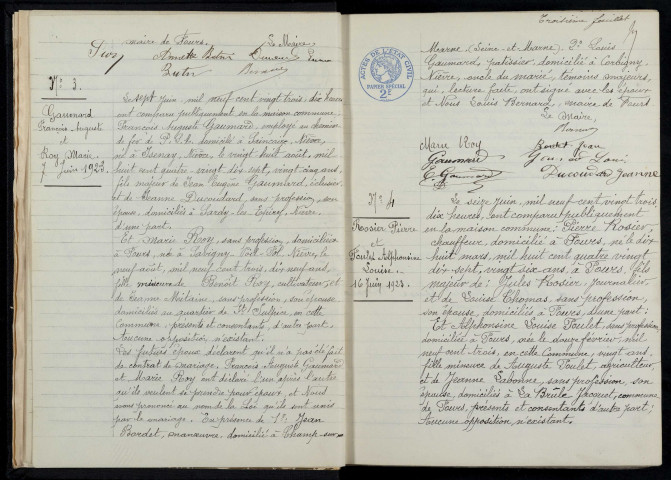 maire de Fours. Le Maire
N° 3.
Gaumard
François Auguste
et
Roy Marie
7 juin 1923.
Le sept juin, mil neuf cent vingt trois, dix heures
ont comparu publiquement en la maison commune:
François Auguste Gaumard, employé au chemin
de fer de P.L.M. domicilié à
né à Isenay, Nièvre, le vingt huit août, mil
huit cent quatre-vingt dix sept, vingt cinq ans,
fils majeur de Jean Eugène Gaumard, éclusier,
et de Jeanne Ducourdard, sans profession, son
épouse, domiciliés à Sardy-les-Epiry, Nièvre
d'une part.
Et Marie Roy, sans profession, domiciliée
à Fours, née à Savigny-Poil-Fol, Nièvre, le
neuf août, mil neuf cent trois, dix neuf ans,
fille mineure de Benoît Roy, cultivateur, et
de Jeanne Métairie, sans profession, son épouse,
domiciliés au quartier de St Sulpice, en cette
Commune, présents et consentants, d'autre part.
Aucune opposition n'existant.
Les futurs époux déclarent qu'il n'a pas été fait
de contrat de mariage. François Auguste Gaumard
et Marie Roy ont déclaré l'un après l'autre
qu'ils veulent se prendre pour époux, et Nous
avons prononcé au nom de la Loi qu'ils sont unis
par le mariage. En présence de: 1° Jean
Bordet, manœuvre, domicilié à Champ-sur-
Troisième feuillet
ACTES DE L'ÉTAT CIVIL
PAPIER SPÉCIAL
Mearne (Seine-et-Marne), 2° Louis
Gaumard, patissier, domicilié à Corbigny
Nièvre, oncle du marié, témoins majeurs,
qui, lecture faite, ont signé avec les époux
et Nous Louis Bernard, maire de Fours
Le Maire,
Marie Roy Bordet Jean
Gaumard
Gaumard Jeanne
N° 4
Rosier Pierre
et
Foulet Alphonsine
Louise.
16 Juin 1923.
Le seize juin, mil neuf cent vingt trois,
dix heures, ont comparu publiquement
en la maison commune: Pierre Rosier
chauffeur, domicilié à Fours, né le dix
huit mars, mil huit cent quatre vingt
dix sept, vingt six ans, à Fours, fils
majeur de: Jules Rosier, journalier,
et de Louise Thomas, sans profession,
son épouse, domiciliés à Fours, d'une part:
Et Alphonsine Louise Foulet, sans profession,
domiciliée à Fours, née le douze février, mil
neuf cent trois, en cette Commune, vingt ans,
fille mineure de Auguste Foulet, agriculteur,
et de Jeanne Labonne, sans profession, son
épouse, domiciliés à La Brule Jacquet, commune
de Fours, présents et consentants d'autre part;
Aucune opposition, n'existant.